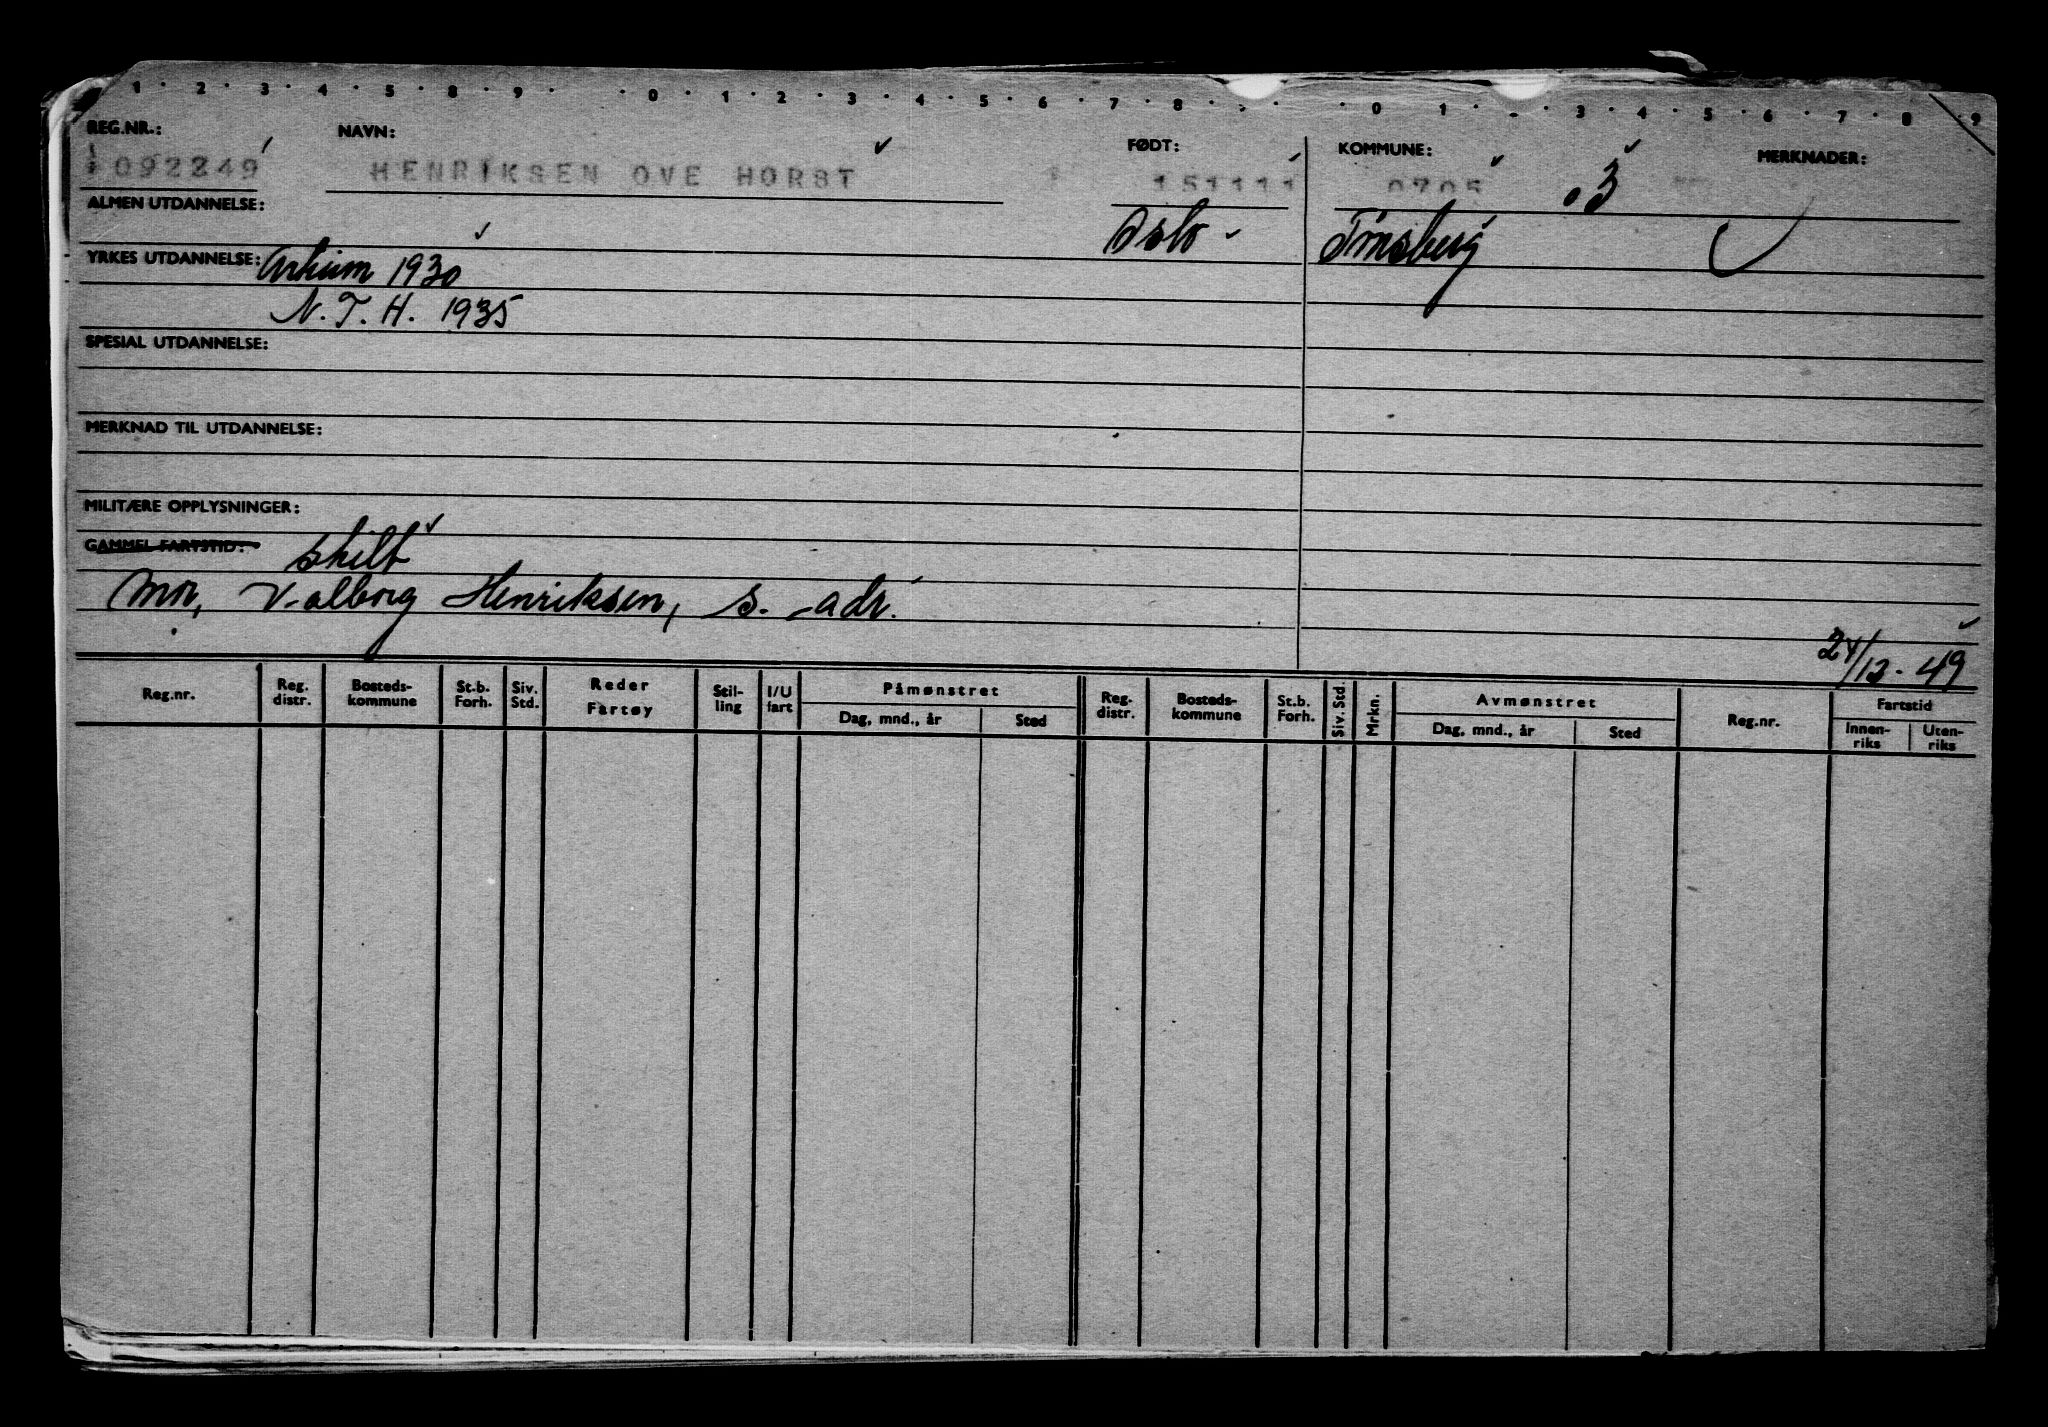 1 · 2 · 3 · 4 · 5 · 8 · 9 · · 0 · 1 · 2 · 3 · 4 · 5 · 6 · 7 · 8 · · 0 · 1 · 3 · 4 · 5 · 6 · 7 · 8 · 9
REG.NR.: NAVN: FØDT: KOMMUNE: MERKNADER:
092249 HENRIKSEN OVE HORST 151111 0705 .3
ALMEN UTDANNELSE: Oslo Tønsberg
YRKES UTDANNELSE: 1930
N.T.H. 1935
SPESIAL UTDANNELSE:
MERKNAD TIL UTDANNELSE:
MILITÆRE OPPLYSNINGER:
GAMMEL FARTSTID: skilt
Mor, Valborg Henriksen, s. adr.
24/12-49
Reg.nr. Reg. distr. Bosteds-kommune St.b. Forh. Siv. Std. Reder Fartøy Stil-ling I/U fart Påmønstret Dag, mnd., år Sted Reg. distr. Bosteds-kommune St.b. Forh. Siv. Std. Mrkn. Avmønstret Dag, mnd., år Sted Reg.nr. Fartstid Innen-riks Uten-riks